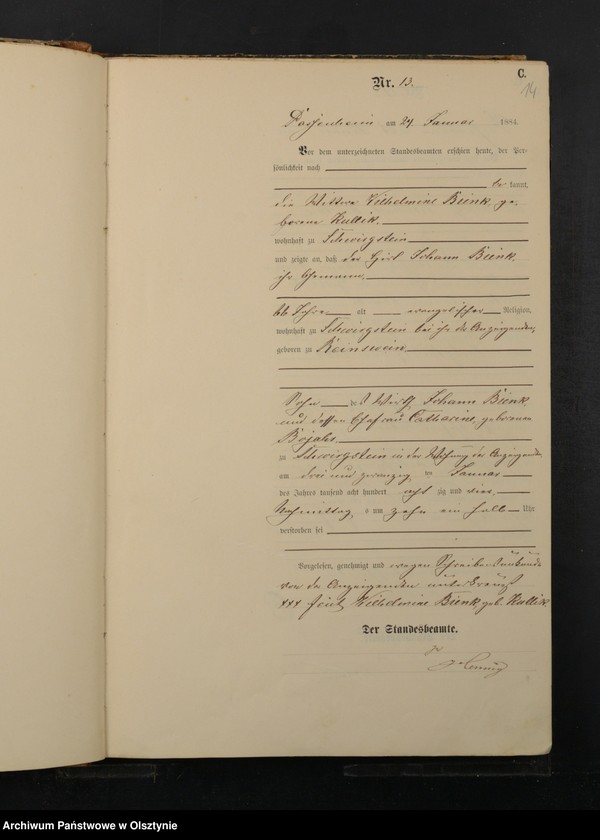 C.
14
Nr. 13.
Passenheim am 24 Januar 1884.
Vor dem unterzeichneten Standesbeamten erschien heute, der Per-
sönlichkeit nach
be kannt,
die Wittwe Wilhelmine Bienk ge-
borene Kullik
wohnhaft zu Schwirgstein
und zeigte an, daß der Johann Bienk,
ihr Ehemann,
66 Jahre alt evangelischer Religion,
wohnhaft zu Schwirgstein bei ihr der Anzeigenden,
geboren zu Rheinswein
Sohn des Wirth Johann Bienk,
und dessen Ehefrau Catharine, geborenen
zu Schwirgstein in der Wohnung der Anzeigenden
am drei und zwanzig ten Januar
des Jahres tausend acht hundert acht zig und vier,
Nachmittag s um zehn ein halb Uhr
verstorben sei
Vorgelesen, genehmigt und wegen Schreibensunkunde
von der Anzeigenden unterkreuzt
+++ Wilhelmine Bienk geb. Kullik
Der Standesbeamte.
Archiwum Państwowe w Olsztynie